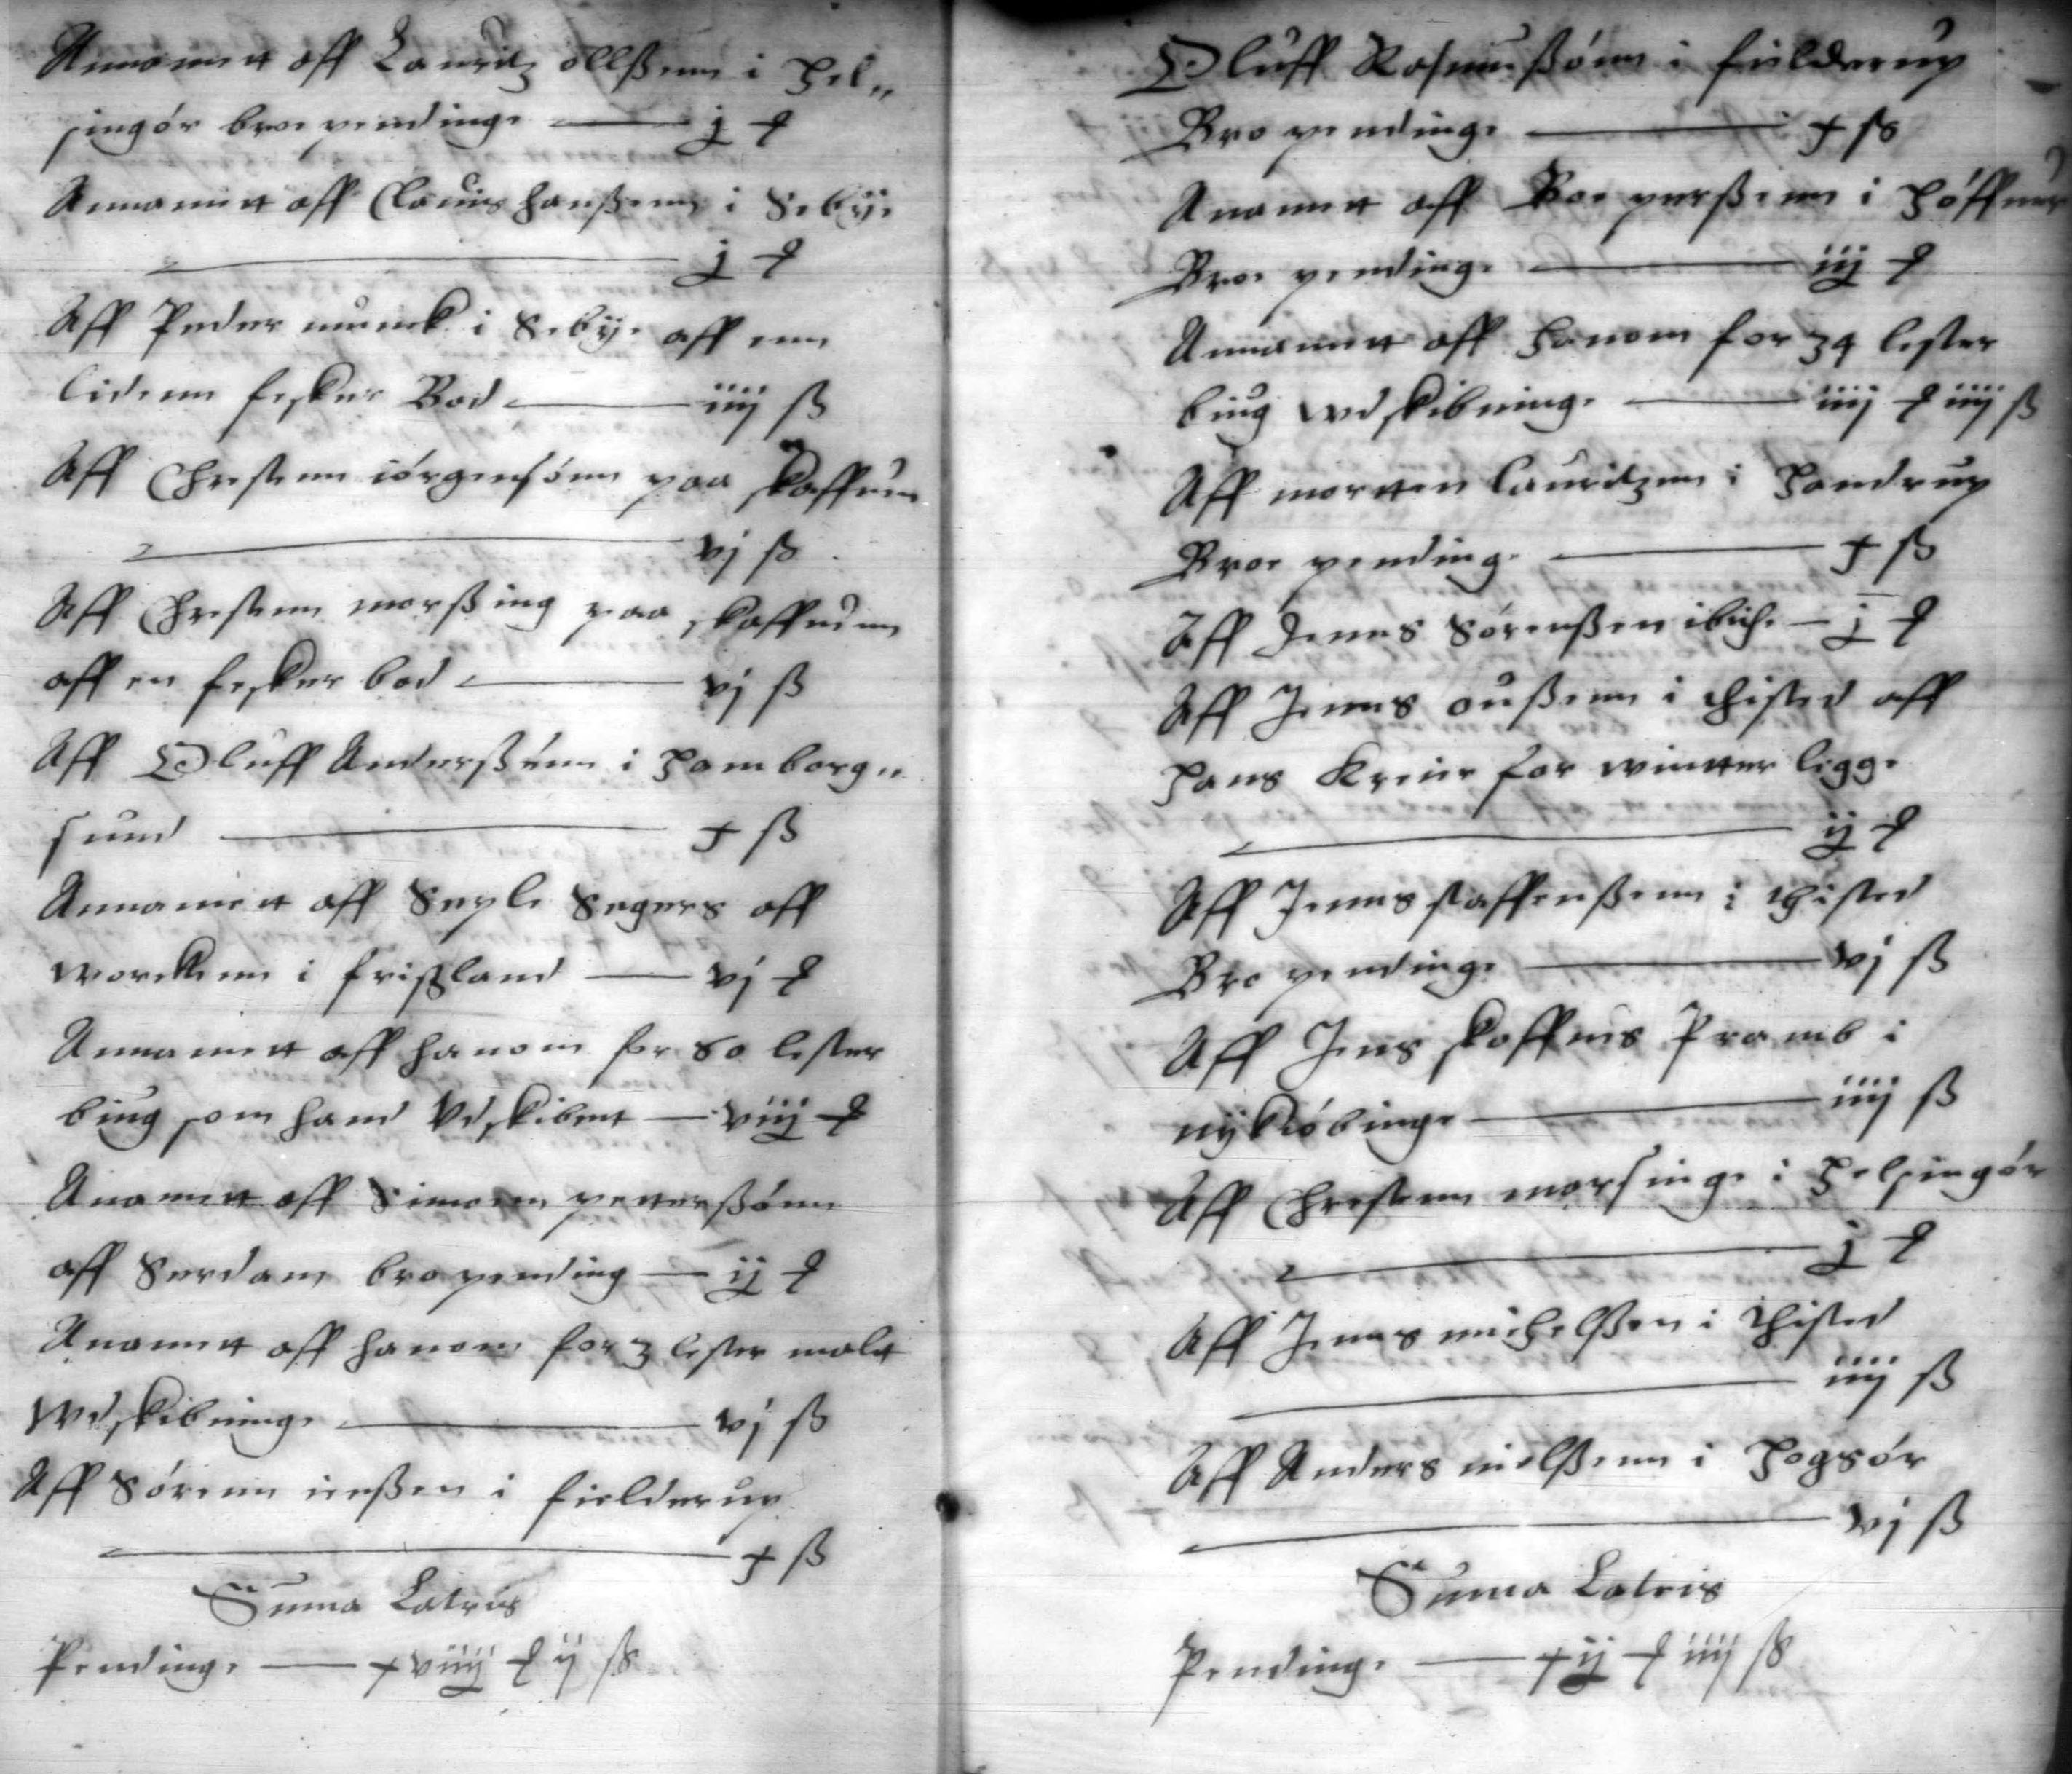 Annammett aff Lauritz ollßenn i Hel„
singór broe pendinge —— j ꝑ
Annammett aff Clauis hanßenn i Sebÿe
—— j ꝑ
Aff Peder munck i Sebÿe aff enn
lidenn fesker Bod —— iiij ß
Aff Chrestenn iórgensónn paa skaffuen
—— vj ß
Aff Chrestenn morßing paa skaffuenn
aff en fesker bod —— vj ß
Aff Oluff Anderßónn i Hamborg„
sund —— x ß
Annammett aff Seyle Segers aff
worckenn i frißland —— vj ꝑ
Annammett aff hanom for 60 lester
biug som hand Vdskibett —— viij ꝑ
Anammett aff Simonn petterßónn
aff Serdam bro pending —— ij ꝑ
Anammett aff hanom for 3 lester malt
Wdskibninge —— vj ß
Aff Sórenn ienßen i fielderup
—— x ß
Suma Lateris
Pendinge —— xviiij ꝑ ij ß
Oluff Rasmußónn i fielderup
Bro pendinge —— x ß
Anammett aff Boe perßenn i
Broe pendinge —— iij ꝑ
Annammett aff hanom for 34 lester
biug wdskibninge —— iiij ꝑ iiij ß
Aff morten lauritzenn i Handrup
Broe pendinge —— x ß
Aff Jenns Sórenßen ibid: — j ꝑ
Aff Jenns oußenn i thisted aff
hans Kreier for wintter ligge
—— ij ꝑ
Aff Jenns staffenßenn i thisted
Bro pendinge —— vj ß
Aff Jens skoffuis Pramb i
nÿkióbinge —— iiij ß
Aff Chrestenn morsinge i Helsingór
—— j ꝑ
Aff Jenns michelßen i Thisted
—— iiij ß
Aff Anders nielßenn i Hogsór
—— vj ß
Suma Lateris
Pendinge —— xij ꝑ iiij ß